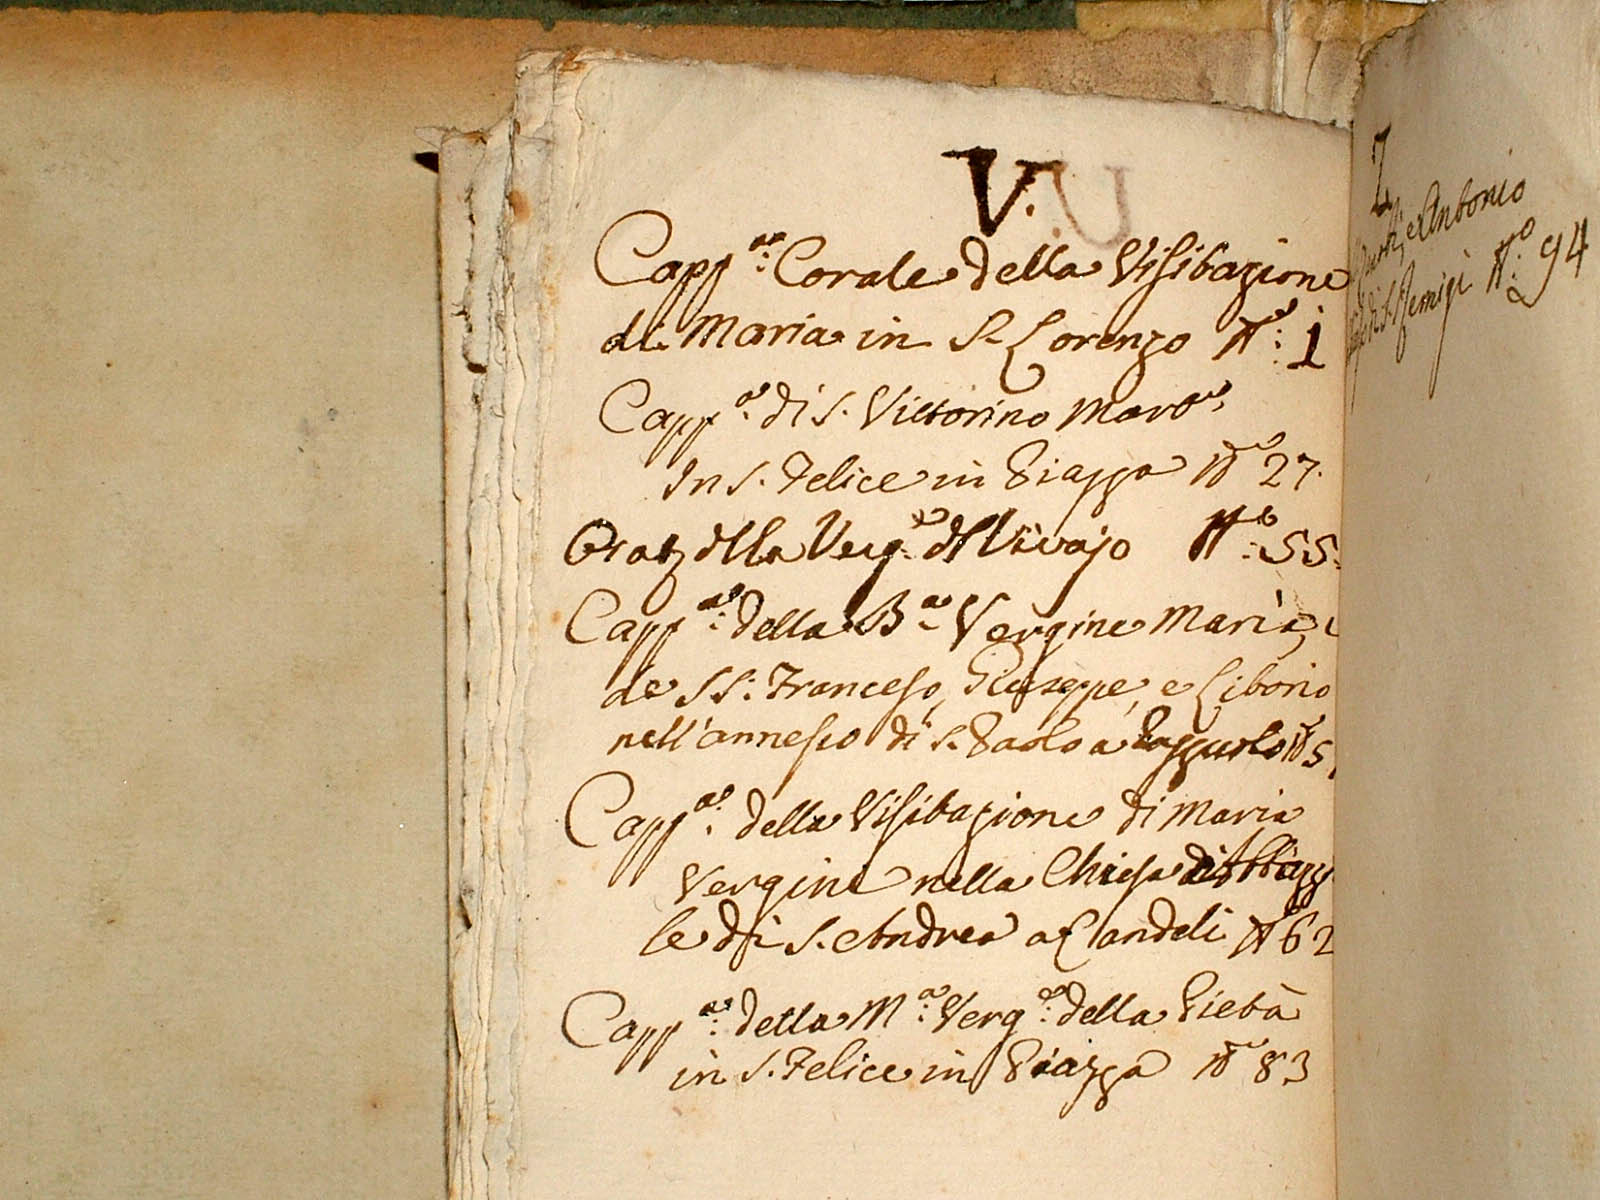 V. U
Capp.a Corale della Visitazione
di Maria in S. Lorenzo N.o 1
Capp.a di S. Vittorino Mar
In S. Felice in Piazza N.o 27.
Orat dlla Verg.e dl Vivajo N.o 55.
Capp.a della B.a Vergine Maria, e
de SS: Francesco, Giuseppe, e Liborio
nell'annesso di S. Paolo a N.o 5
Capp.a della Visitazione di Maria
Vergine nella Chiesa
le di S. Andrea a Candeli N.o 62
Capp.a della M.a Verg.e della Pietà
in S. Felice in Piazza N.o 83
Z
e Antonio
di S. Remigi N.o 94